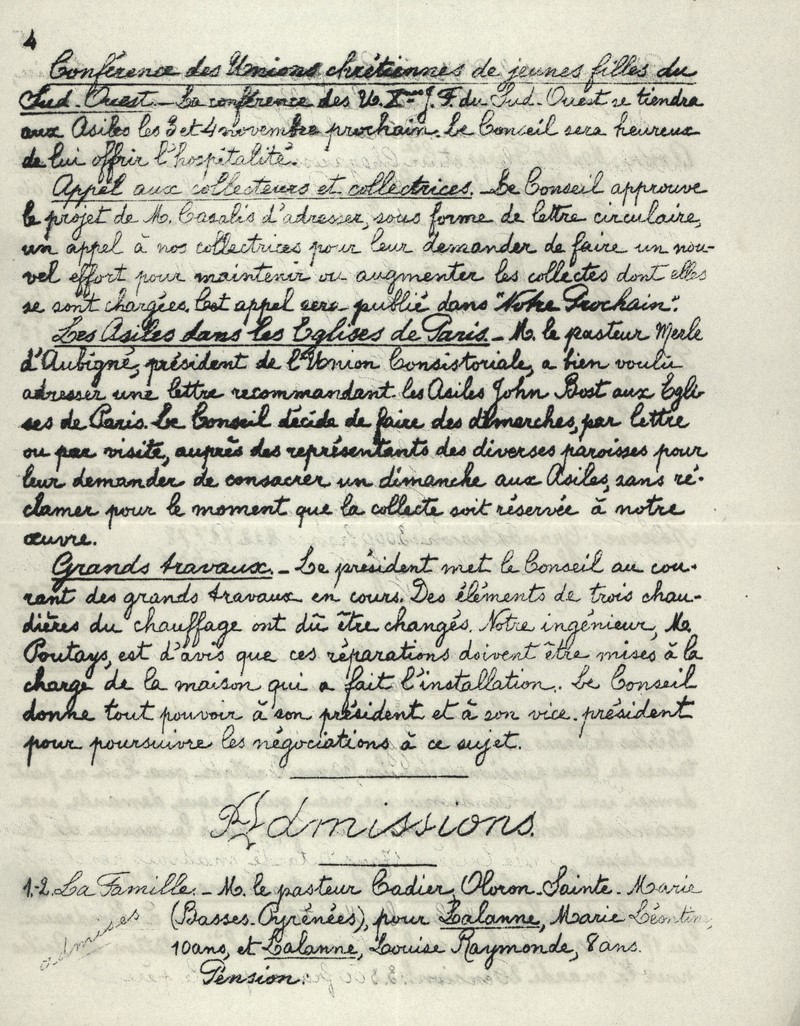 4
Conférence des Unions chrétiennes de jeunes filles du
Sud-Ouest._ La conférence des U. Xnes J. F. du Sud-Ouest se tiendra
aux Asiles les 3 et 4 novembre prochain. Le Conseil sera heureux
de lui offrir l'hospitalité.
Appel aux collecteurs et collectrices._ Le Conseil approuve
le projet de M. Casalis d'adresser, sous forme de lettre circulaire,
un appel à nos collectrices pour leur demander de faire un nou-
vel effort pour maintenir ou augmenter les collectes dont elles
se sont chargées. Cet appel sera publié dans "Notre Prochain".
Les Asiles dans les Eglises de Paris._ M. le pasteur Merle
d'Aubigné, président de l'Union Consistoriale, a bien voulu
adresser une lettre recommandant les Asiles John Bost aux Egli-
ses de Paris. Le Conseil décide de faire des démarches, par lettre
ou par visite, auprès des représentants des diverses paroisses pour
leur demander de consacrer un dimanche aux Asiles, sans ré-
clamer pour le moment que la collecte soit réservée à notre
œuvre.
Grands travaux._ Le président met le Conseil au cou-
rant des grands travaux en cours. Des éléments de trois chau-
dières du chauffage ont dû être changés. Notre ingénieur, M.
Poutays, est d'avis que ces réparations doivent être mises à la
charge de la maison qui a fait l'installation. Le Conseil
donne tout pouvoir à son président et à son vice-président
pour poursuivre les négociations à ce sujet.
Admissions.
1-2. La Famille._ M. le pasteur Cadier, Oloron-Sainte-Marie
(Basses-Pyrénées), pour Lalanne, Marie Léontine,
admises
10 ans, et Lalanne, Louise Raymonde, 8 ans.
Pension: